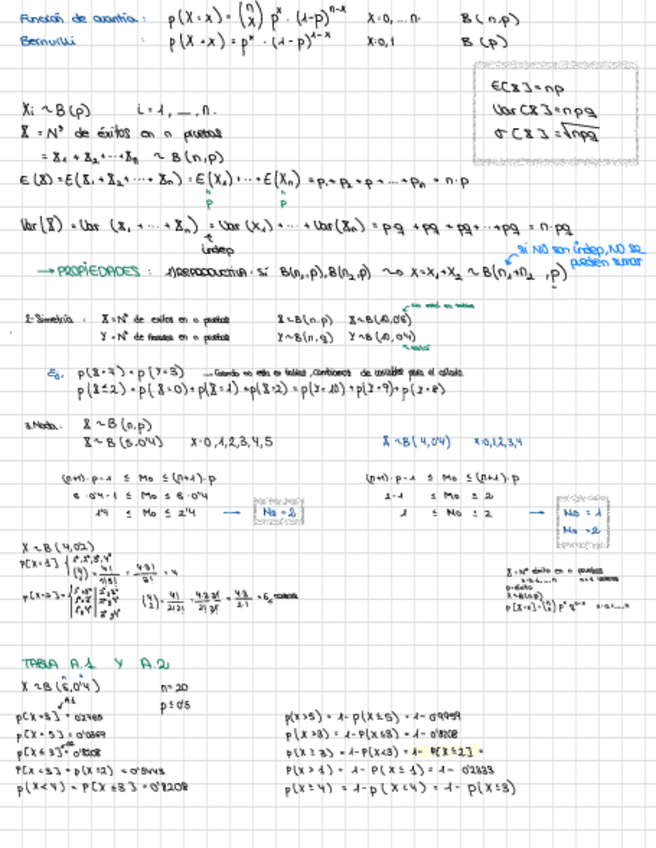 Función de cuantía: p(X=x) = (n x) p^x · (1-p)^{n-x} X=0,...n. B(n.p)
Bernuilli : p(X=x) = p^x · (1-p)^{1-x} X=0,1 B(p)
E[X]=np
Var[X]=npq
σ[X]=√npq
Xi ~ B(p) i=1, ..., n.
X = Nº de éxitos en n pruebas
= X1 + X2 + ... + Xn ~ B(n,p)
E(X) = E(X1 + X2 + ... + Xn) = E(X1) + ... + E(Xn) = p1 + p2 + p + ... + pn = n·p
p p
Var(X) = Var (X1 + ... + Xn) = Var(X1) + ... + Var(Xn) = pq + pq + pq + ... + pq = n·pq
indep
si NO son indep, NO se pueden sumar
→ PROPIEDADES: 1) REPRODUCTIVA: Si B(n1,p), B(n2,p) ~> X=X1+X2 ~ B(n1+n2, p)
No está en tablas
2-Simetría: X=Nº de éxitos en n pruebas X~B(n.p) X~B(10,0'6)
Y=Nº de fracasos en n pruebas Y~B(n,q) Y~B(10,0'4)
Eg. p(X=7) = p(Y=3) ... Cuando no está en tablas, cambiamos de variable para el cálculo.
p(X≤2) = p(X=0) + p(X=1) + p(X=2) = p(Y=10) + p(Y=9) + p(Y=8)
3.Moda: X ~ B(n,p)
X ~ B(5,0'4) X=0,1,2,3,4,5 X ~ B(4,0'4) X=0,1,2,3,4
(n+1)·p-1 ≤ Mo ≤ (n+1)·p (n+1)·p-1 ≤ Mo ≤ (n+1)·p
6·0'4-1 ≤ Mo ≤ 6·0'4 2-1 ≤ Mo ≤ 2
1'4 ≤ Mo ≤ 2'4 → Mo=2 1 ≤ Mo ≤ 2 → Mo=1
Mo=2
X ~ B(4,0'2)
P[X=1] = 4!/1!3! = 4·3!/3! = 4
p[X=2] = (4 2) = 4!/2!2! = 4·3·2!/2!·2! = 4·3/2·1 = 6
X=Nº éxito en n pruebas
X~B(n,p)
TABLA A.1 Y A.2
X ~ B(5,0'4) n=20
p≤0'5
p(X>5) = 1-P(X≤5) = 1-0'9959
p(X>3) = 1-P(X≤3) = 1-0'8208
P[X≤3] = 0'8208 p(X≥3) = 1-P(X<3) = 1- P[X≤2] =
P[X<3] = p(X≤2) = 0'5443 P(X>1) = 1-P(X≤1) = 1-0'2333
p(X<4) = P[X≤3] = 0'8208 p(X≥4) = 1-p(X<4) = 1-p(X≤3)